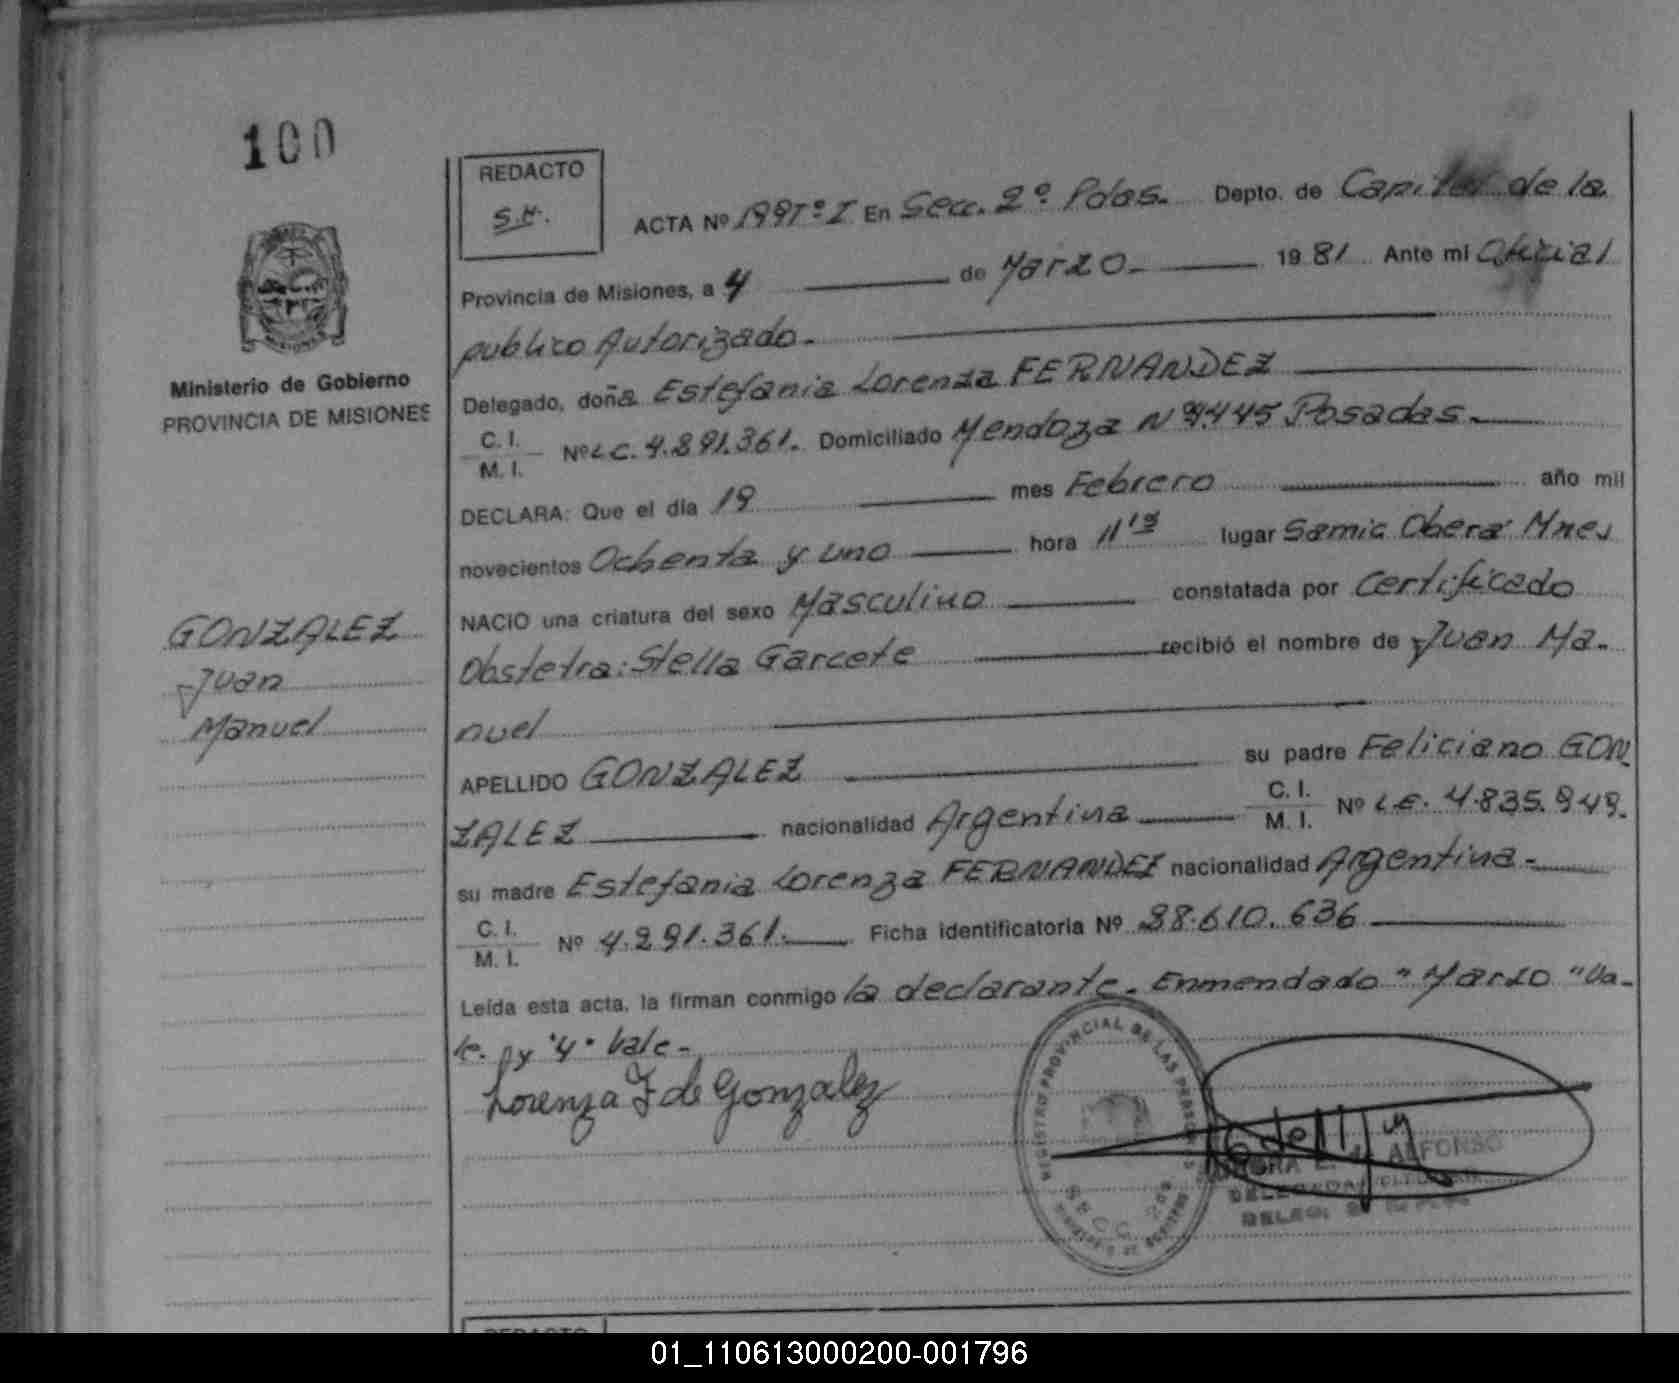 100
REDACTO
S.H.
ACTA Nº 199 Tº I En Secc. 2º Pdas. Depto. de Capital de la
Provincia de Misiones, a 4 de Marzo 1981 Ante mi Oficial
publico Autorizado.
Delegado, doña Estefania Lorenza FERNANDEZ
C. I.
M. I.
Nº L C. 4.891.361. Domiciliado Mendoza Nº 445 Posadas.
DECLARA: Que el día 19 mes Febrero año mil
novecientos Ochenta y uno hora 11 15 lugar Samic Oberá Mnes
NACIO una criatura del sexo Masculino constatada por Certificado
Obstetra: Stella Garcete recibió el nombre de Juan Ma-
nuel
APELLIDO GONZALEZ su padre Feliciano GON
ZALEZ nacionalidad Argentina
C. I.
M. I.
Nº L.E. 4.835.949.
su madre Estefania Lorenza FERNANDEZ nacionalidad Argentina.-
C. I.
M. I.
Nº 4.891.361. Ficha identificatoria Nº 28.610.636
Leída esta acta, la firman conmigo la declarante. Enmendado "Marzo" "Va-
le. "4" Vale-
Lorenza F de Gonzalez
Ministerio de Gobierno
PROVINCIA DE MISIONES
MISIONES
GONZALEZ
Juan
Manuel
REGISTRO PROVINCIAL DE LAS PERSONAS
SECC. 2da
ALFONSO
DELEGADA TITULAR
REDACTO
01_110613000200-001796